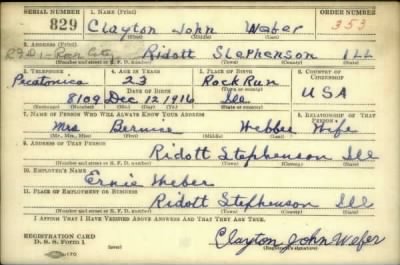 SERIAL NUMBER 1. NAME (Print) ORDER NUMBER
829 Clayton John Weber 353
(First) (Middle) (Last)
2. ADDRESS (Print)
RFD 1 - Ridott Stephenson Ill
(Number and street or R. F. D. number) (Town) (County) (State)
3. TELEPHONE 4. AGE IN YEARS 5. PLACE OF BIRTH 6. COUNTRY OF CITIZENSHIP
Pecatonica 23 Rock Run
DATE OF BIRTH USA
8109 Dec 12 1916 Ill
(Exchange) (Number) (Mo.) (Day) (Yr.) (State or country)
7. NAME OF PERSON WHO WILL ALWAYS KNOW YOUR ADDRESS 8. RELATIONSHIP OF THAT PERSON
Mrs Bernice Webber Wife
(Mr., Mrs., Miss) (First) (Middle) (Last)
9. ADDRESS OF THAT PERSON
Ridott Stephenson Ill
(Number and street or R. F. D. number) (Town) (County) (State)
10. EMPLOYER'S NAME
Ernie Weber
11. PLACE OF EMPLOYMENT OR BUSINESS
Ridott Stephenson Ill
(Number and street or R. F. D. number) (Town) (County) (State)
I AFFIRM THAT I HAVE VERIFIED ABOVE ANSWERS AND THAT THEY ARE TRUE.
REGISTRATION CARD
D. S. S. Form 1 Clayton John Weber
(Registrant's signature)